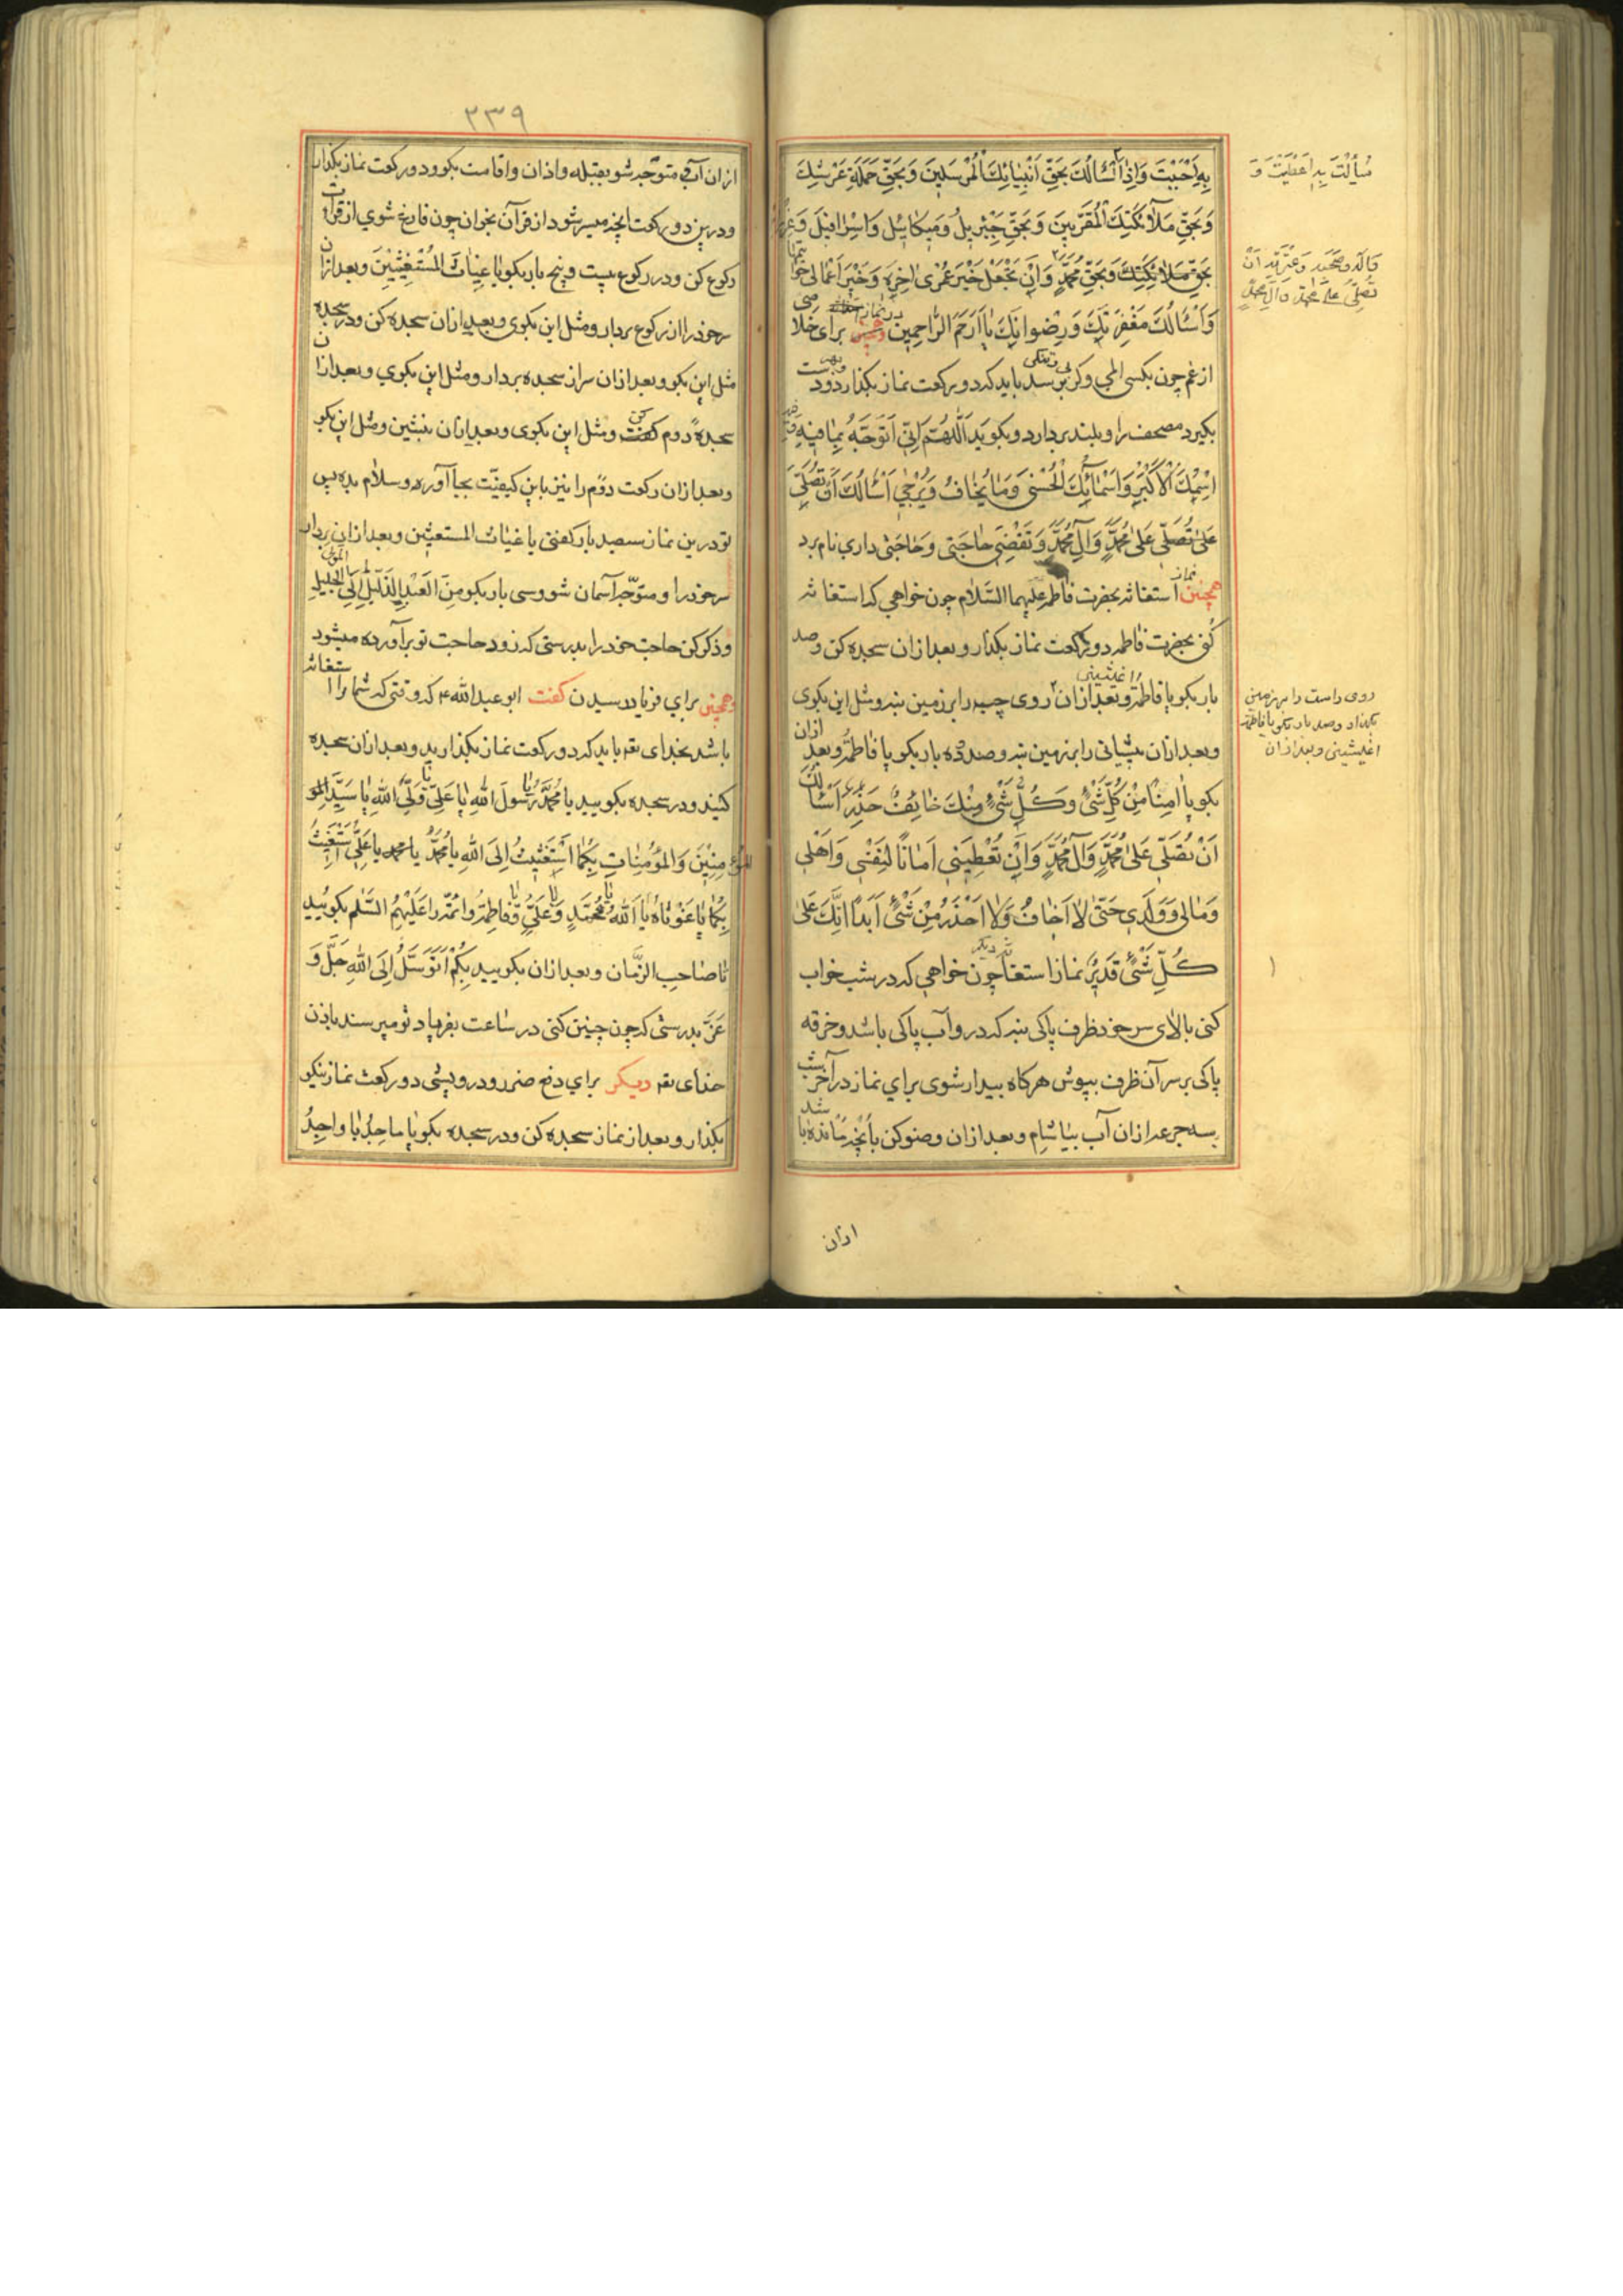 بِهِ اَجَبْتَ وَاِذَا سُئِلْتَ بِهِ اَعْطَيْتَ وَ اَسْئَالُكَ بِحَقِّ اَنْبِيٰائِكَ الْمُرْسَلِينَ وَبِحَقِّ حَمَلَةِ عَرْشِكَ
وَبِحَقِّ مَلٰٓائِكَتِكَ الْمُقَرَّبِينَ وَبِحَقِّ جِبْرِيلُ وَمِيكٰائِيلُ وَاِسْرٰافِيلَ وَ
بِحَقِّ مَلٰائِكَتِكَ وَبِحَقِّ مُحَمَّدٍ وَاَنْ تَجْعَلْ خَيْرَ عُمْرِى اٰخِرِهِ وَخَيْرَ اَعْمٰالِى خَوٰاتِمَهٰا
وَاَسْئَالُكَ مَغْفِرَتِكَ وَرِضْوٰانِكَ يٰا اَرَحَمَ الرّٰاحِمِين براى خلاصى
از غم چون بكسى المى وكربى برسد بايد كه دو ركعت نماز بكذارد ودست
بكيرد مصحف را وبلند بردارد وبكويد اَللّٰهُمَّ اِنِّى اَتَوَجَّهُ بِمٰا فِيهِ
اِسْمُكَ الْاَكْبَرِ وَاَسْمٰائِكَ الْحُسْنىٰ وَمٰا يُخٰافُ وَيُرْجىٰ اَسْئَالُكَ اَنْ تُصَلِّىَ
عَلىٰ مُحَمَّدٍ وَآلِ مُحَمَّدٍ وَتَقْضِىَ حٰاجَتِى وَحٰاجَتى دارى نام برد
همچنين نماز استغاثه بحضرت فاطمه عليهما السّلام چون خواهي كه استغاثه
كنى بحضرت فاطمه دو ركعت نماز بكذار وبعد ازان سجده كن وصد
بار بكو يا فاطمة اغثينى وبعد ازان روى چپ را بر زمين بنه ومثل اين بكوى
وبعد ازان پيشانى را بر زمين بنه وصد وده بار بكو يا فاطمةُ وبعد ازان
بكو يٰا اٰمِنًا مِنْ كُلِّ شَىْءٍ وَكُلُّ شَىْءٍ مِنْكَ خٰائِفٌ حَذِرٌ اَسْئَالُكَ
اَنْ تُصَلِّىَ عَلىٰ مُحَمَّدٍ وَآلِ مُحَمَّدٍ وَاَنْ تُعْطِيَنِى اَمٰانًا لِنَفْسِى وَاَهْلِى
وَمٰالِى وَوَلَدِى حَتّىٰ لاٰ اَخٰافُ وَلاٰ اَحْذَرُ مِنْ شَىْءٍ اَبَدًا اِنَّكَ عَلىٰ
كُلِّ شَىْءٍ قَدِيرٌ نماز استغاثه ديكر چون خواهي كه در شب خواب
كنى بالاى سر خود ظرف پاكى بنه كه درو آب پاكى باشد وخرقه
پاكى بر سر آن ظرف بپوش هر كاه بيدار شوى براي نماز در آخر شب
سه جرعه ازان آب بياشام وبعد ازان وضو كن بآنچه مانده باشد
سُألْتَ بِهِ اَعْطَيْتَ وَ
تُصَلِّىَ عَلىٰ مُحمّدٍ وَآلِ مُحمّدٍ
روى راست را بر زمين
بكذار وصد بار بكو يا فاطمة
اغيثينى وبعد ازان
ازان
٢٣٩
ازان آب متوجّه شو بقبله واذان واقامت بكو ودو ركعت نماز بكذار
ودرين دو ركعت انچه ميسر شود از قرآن بخوان چون فارغ شوي از قرائت
ركوع كن ودر ركوع بيست وپنج بار بكو يٰا غِيٰاثَ الْمُسْتَغِيثِينَ وبعد ازان
سر خود را از ركوع بردار ومثل اين بكوى وبعد ازان سجده كن ودر سجده
مثل اين بكو وبعد ازان سر از سجده بردار ومثل اين بكوي وبعد ازان
سجدهٔ دوم كن ومثل اين بكوى وبعد ازان بنشين ومثل اين بكو
وبعد ازان ركعت دوّم را نيز باين كيفيّت بجا آورده وسلام بده پس
تو درين نماز سيصد بار كفتى يا غياث المستغيثين وبعد ازان بردار
سر خود را ومتوجّه آسمان شو وسى بار بكو مِنَ الْعَبْدِ الذَّلِيلِ اِلَى الْمَوْلَى الْجَلِيلِ
وذكر كن حاجت خود را بدرستى كه زود حاجت تو برآورده ميشود
وهمچنين براي فرياد رسيدن كفت ابو عبد الله ع كه وقتى كه شما را استغاثه
باشد بخداى تعه بايد كه دو ركعت نماز بكذاريد وبعد ازان سجده
كنيد ودر سجده بكوييد يا مُحَمَّدُ يٰا رَسُولَ اللهِ يٰا عَلِىُّ يٰا وَلِىَّ اللهِ يٰا سَيِّدَ
الْمُؤْمِنِينَ وَالْمُؤْمِنٰاتِ بِكُمٰا اَسْتَغِيثُ اِلَى اللهِ يٰا مُحَمَّدُ يٰا عَلِىُّ اَسْتَغِيثُ
بِكُمٰا يٰا غَوْثٰاهُ يٰا اَللهُ يٰا مُحَمَّدٍ وَيٰا عَلِىٍّ وَيٰا فٰاطِمَةُ وائمّه را عَلَيْهِمُ السَّلٰم بكوئيد
تا صٰاحب الزّمان وبعد ازان بكوييد بِكُمْ اَتَوَسَّلُ اِلَى اللهِ جَلَّ وَ
عَزَّ بدرستى كه چون چنين كنى در ساعت بفرياد تو ميرسند باذن
خداى تعه ديكر براي دفع ضرر ودرويشى دو ركعت نماز نيكو
بكذار وبعد از نماز سجده كن ودر سجده بكو يٰا مٰاجِدُ يٰا وٰاجِدُ